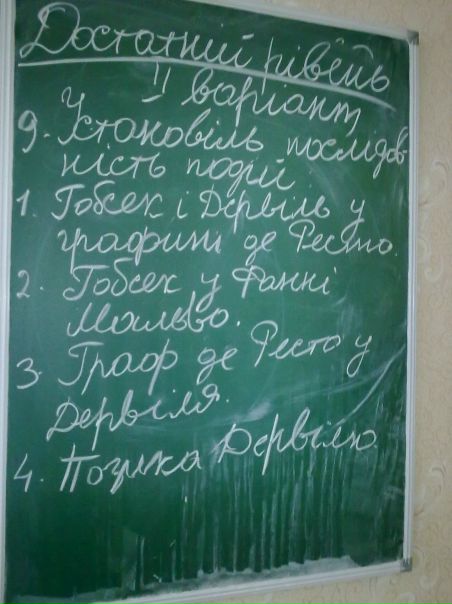 Достатній рівень
II варіант
9. Установіть послідов-
ність подій
1. Гобсек і Дервіль у
графині де Ресто.
2. Гобсек у Фанні
Мальво.
3. Граф де Ресто у
Дервіля.
4. Позика Дервілю.